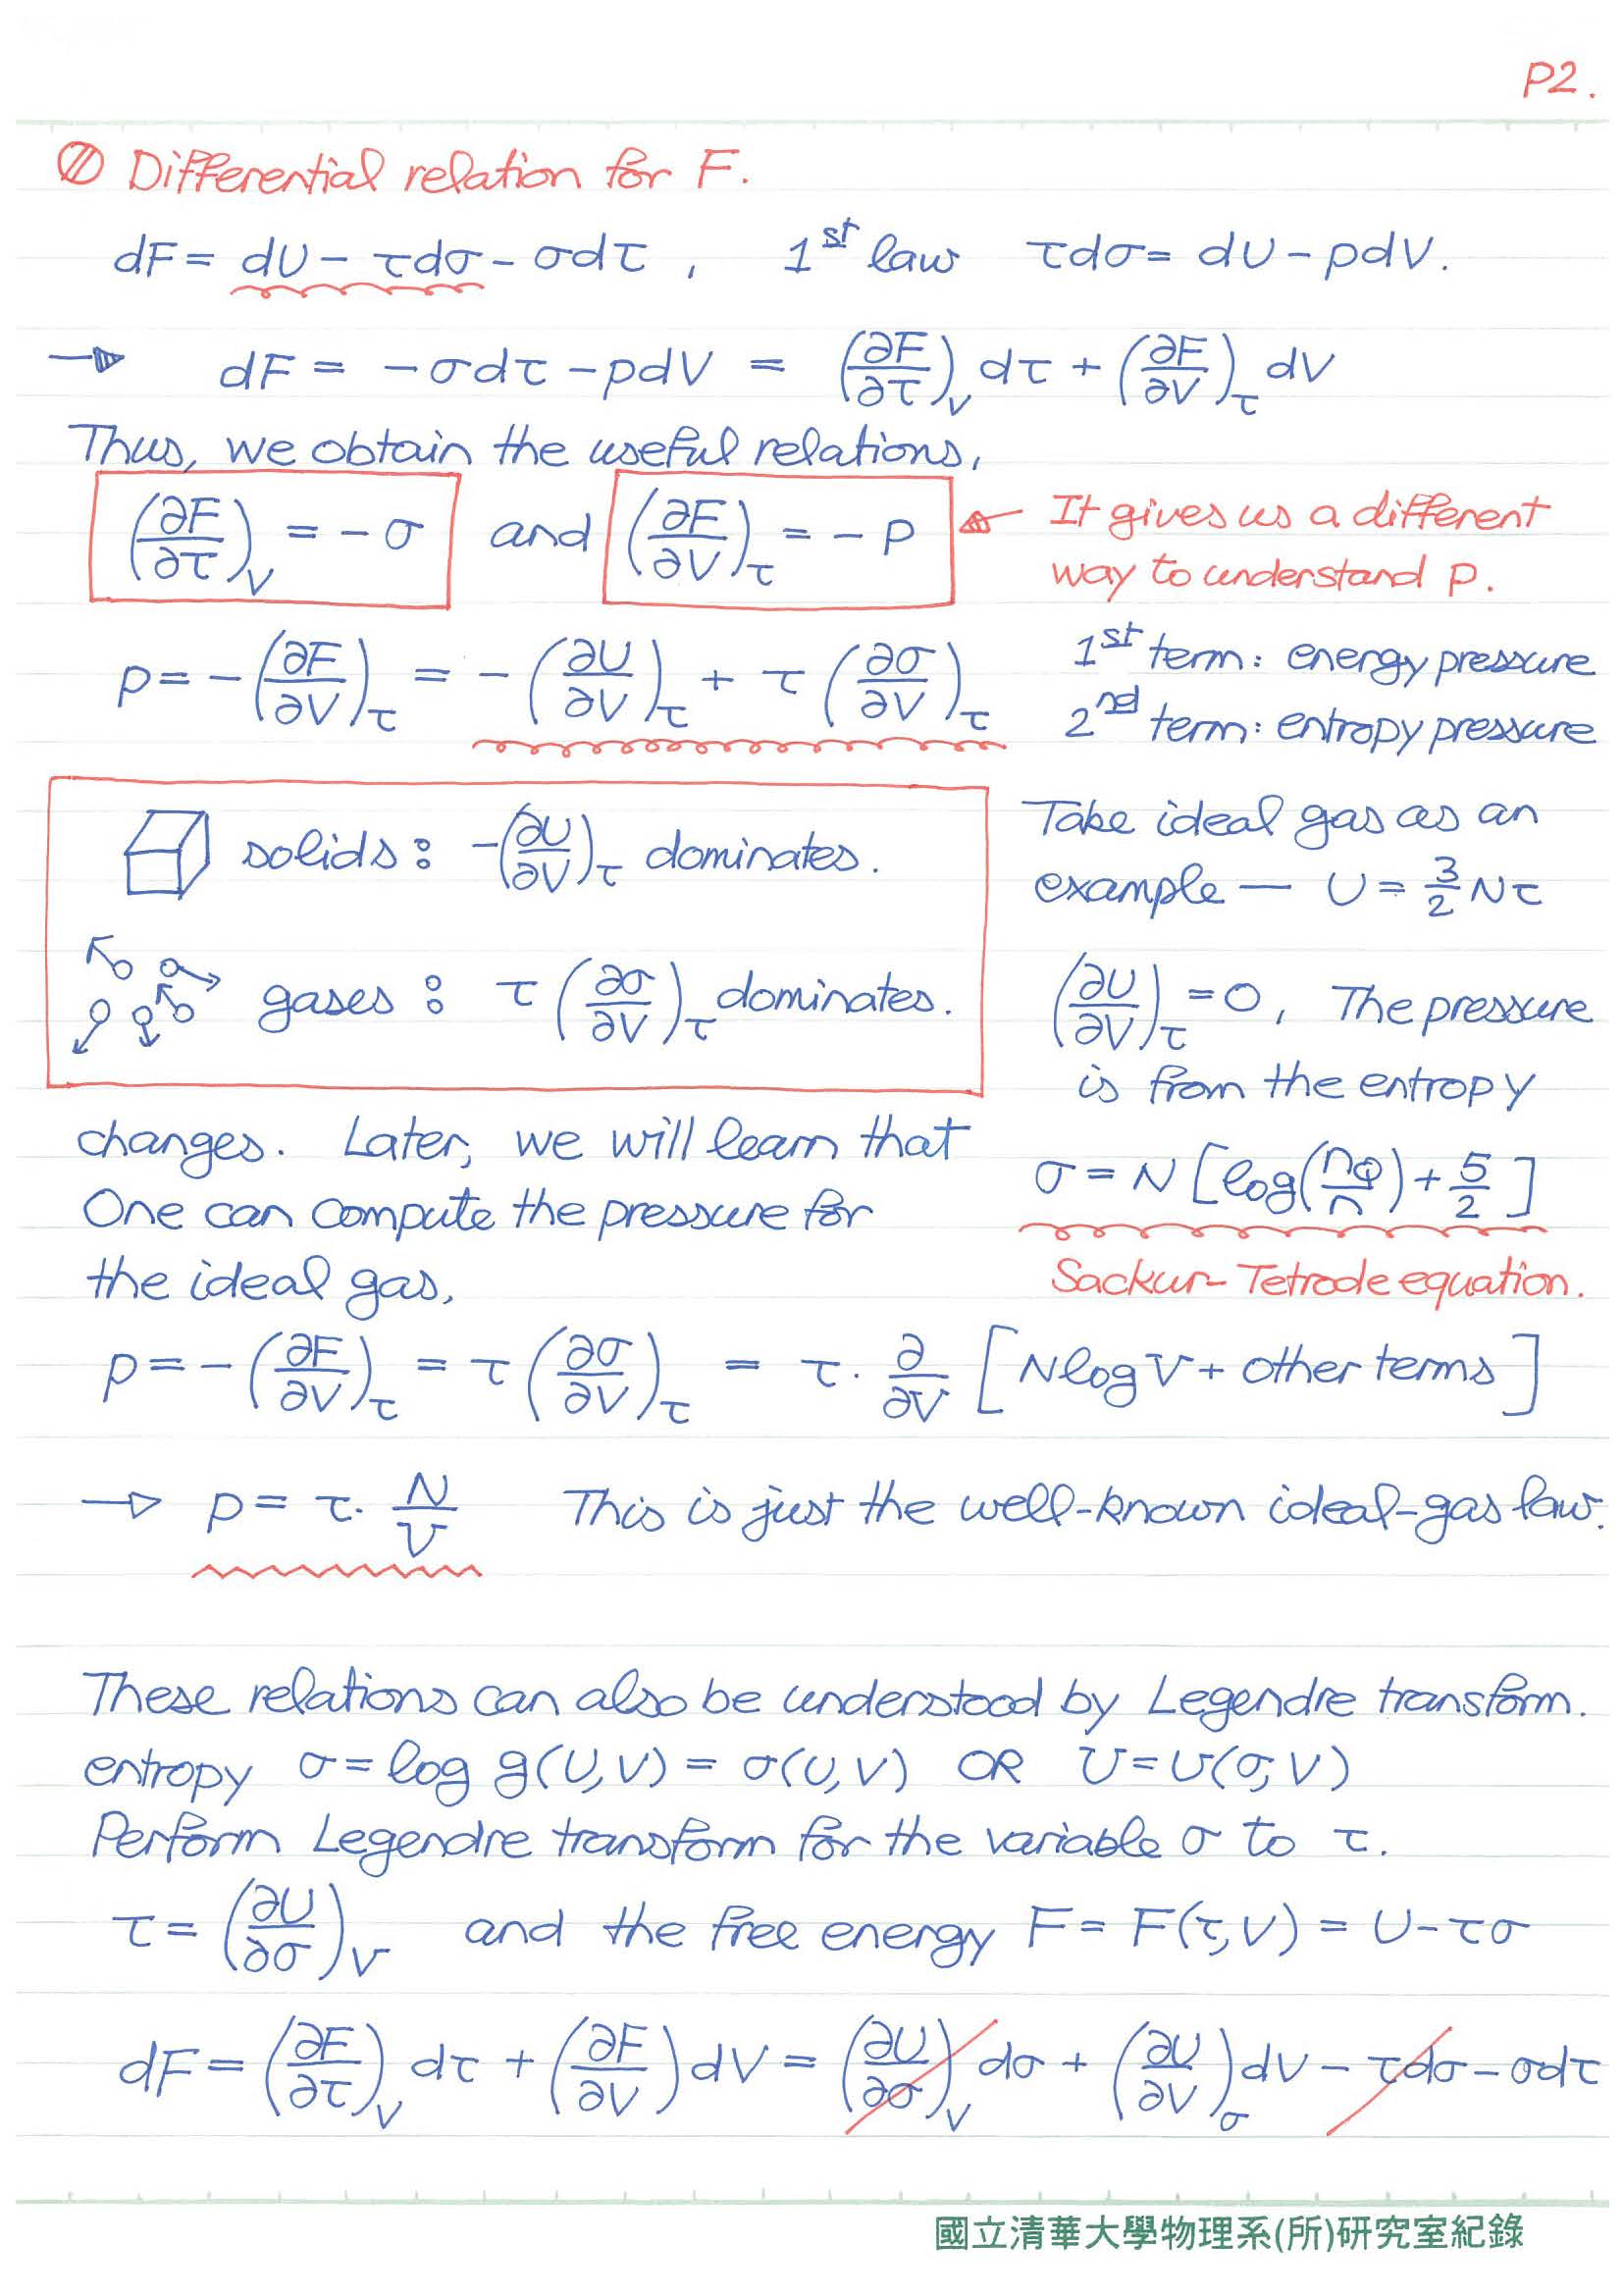 P2.
Differential relation for F.
dF = dU − τdσ − σdτ , 1st law τdσ = dU − pdV.
→ dF = −σdτ − pdV = (∂F/∂τ)_V dτ + (∂F/∂V)_τ dV
Thus, we obtain the useful relations,
(∂F/∂τ)_V = −σ and (∂F/∂V)_τ = −p
It gives us a different
way to understand p.
p = −(∂F/∂V)_τ = −(∂U/∂V)_τ + τ(∂σ/∂V)_τ
1st term: energy pressure
2nd term: entropy pressure
solids : −(∂U/∂V)_τ dominates.
gases : τ(∂σ/∂V)_τ dominates.
Take ideal gas as an
example — U = 3/2 Nτ
(∂U/∂V)_τ = 0, The pressure
is from the entropy
changes. Later, we will learn that
σ = N [log(n_Q/n) + 5/2]
Sackur-Tetrode equation.
One can compute the pressure for
the ideal gas,
p = −(∂F/∂V)_τ = τ(∂σ/∂V)_τ = τ · ∂/∂V [N log V + other terms]
→ p = τ · N/V This is just the well-known ideal-gas law.
These relations can also be understood by Legendre transform.
entropy σ = log g(U,V) = σ(U,V) OR U = U(σ,V)
Perform Legendre transform for the variable σ to τ.
τ = (∂U/∂σ)_V and the free energy F = F(τ,V) = U − τσ
dF = (∂F/∂τ)_V dτ + (∂F/∂V) dV = (∂U/∂σ)_V dσ + (∂U/∂V)_σ dV − τdσ − σdτ
國立清華大學物理系(所)研究室紀錄